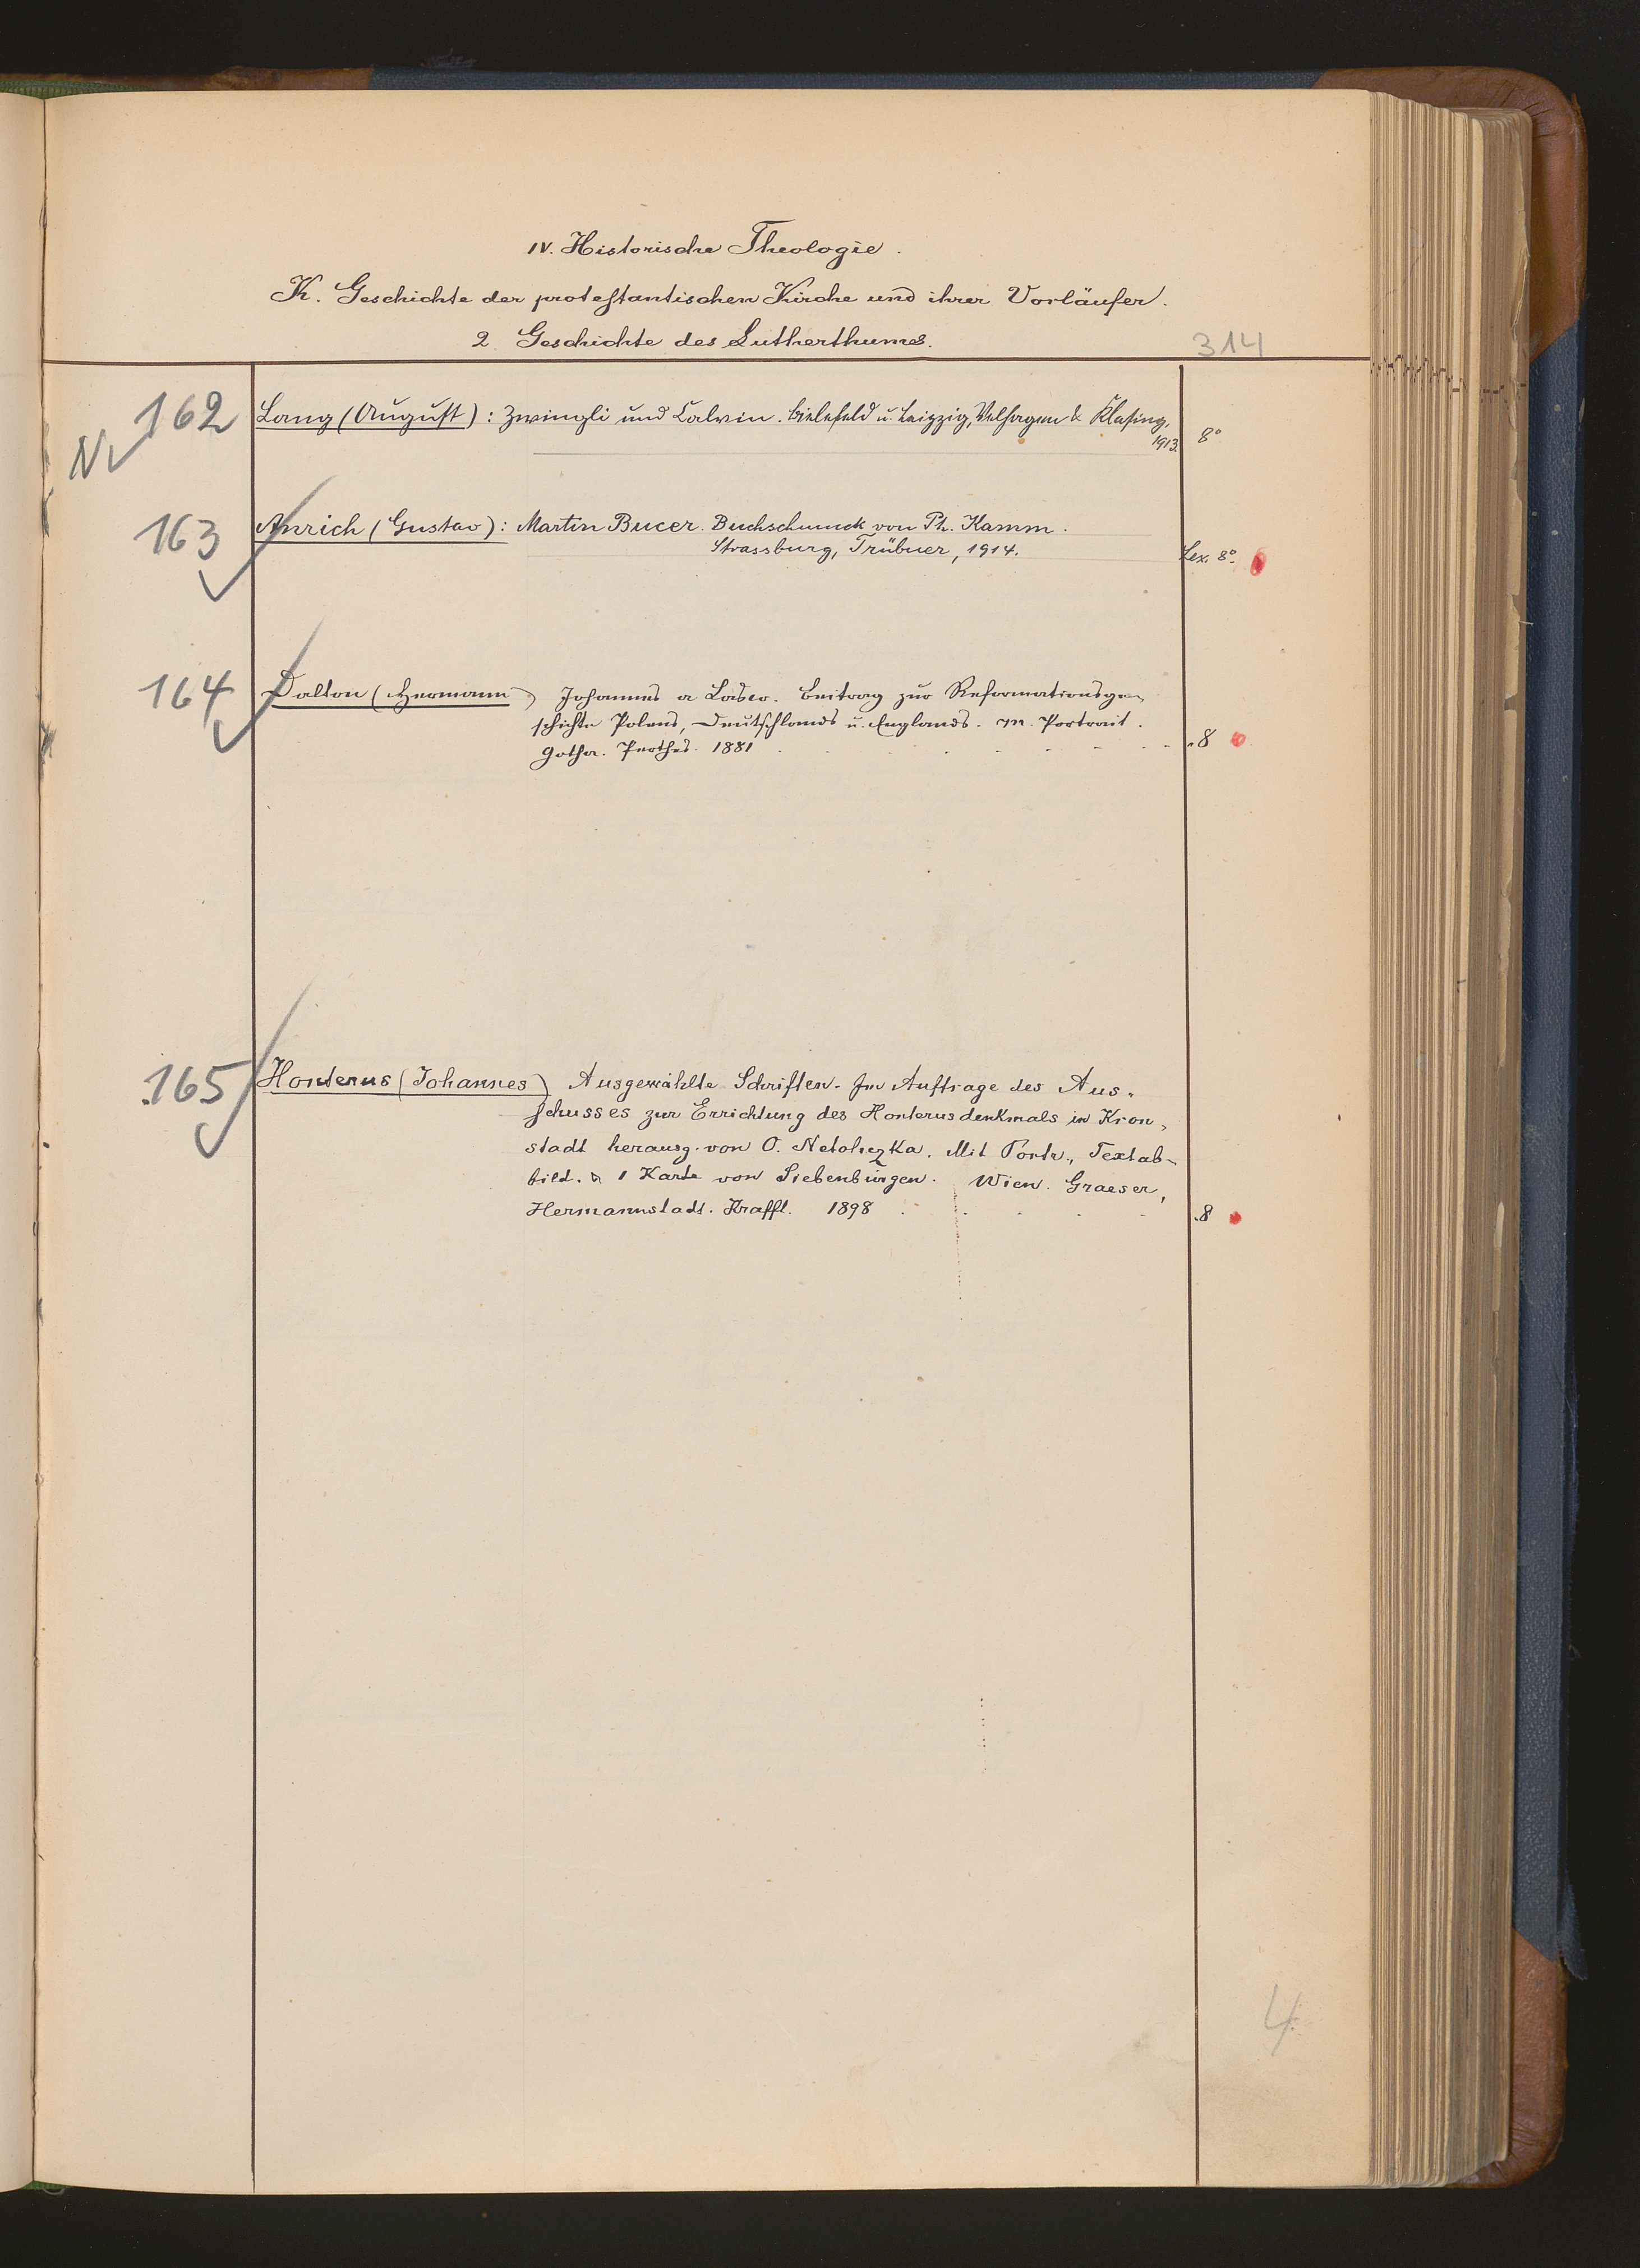 IV. Historische Theologie.
K. Geschichte der protestantischen Kirche und ihrer Vorläufer.
2 Geschichte des Lutherthumes.
314
162 Lang (August): Zwingli und Calvin. Bielefeld u. Leipzig, Velhagen & Klasing,
1913. 8°
N
163 Anrich (Gustav): Martin Bucer. Buchschmuck von Ph. Kamm.
Strassburg, Trübner, 1914. Lex. 8°.
164 Dalton (Hermann) Johannes a Lasco. Beitrag zur Reformationsge-
schichte Polens, Deutschlands u. Englands. M. Portrait.
Gotha. Perthes. 1881 8
165 Honterus (Johannes) Ausgewählte Schriften. Im Auftrage des Aus-
schusses zur Errichtung des Honterusdenkmals in Kron-
stadt herausg. von O. Netoliczka. Mit Portr., Textab-
bild. & 1 Karte von Siebenbürgen. Wien. Graeser,
Hermannstadt. Krafft. 1898 8
4